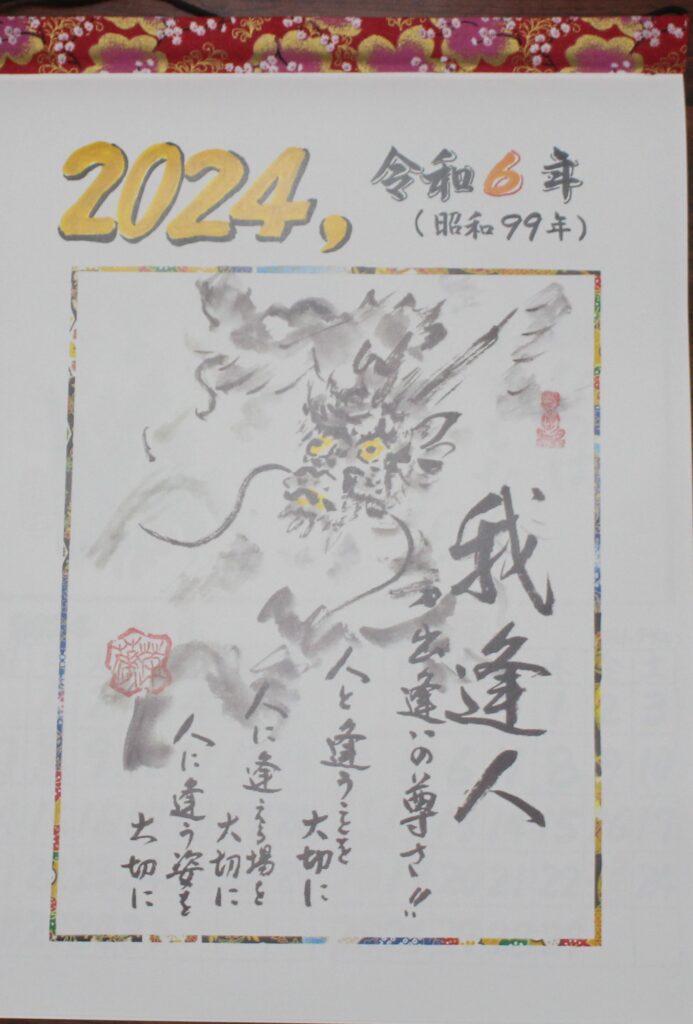 2024,
令和6年
(昭和99年)
我逢人
出逢いの尊さ!!
人と逢うことを
大切に
人に逢える場を
大切に
人に逢う姿を
大切に